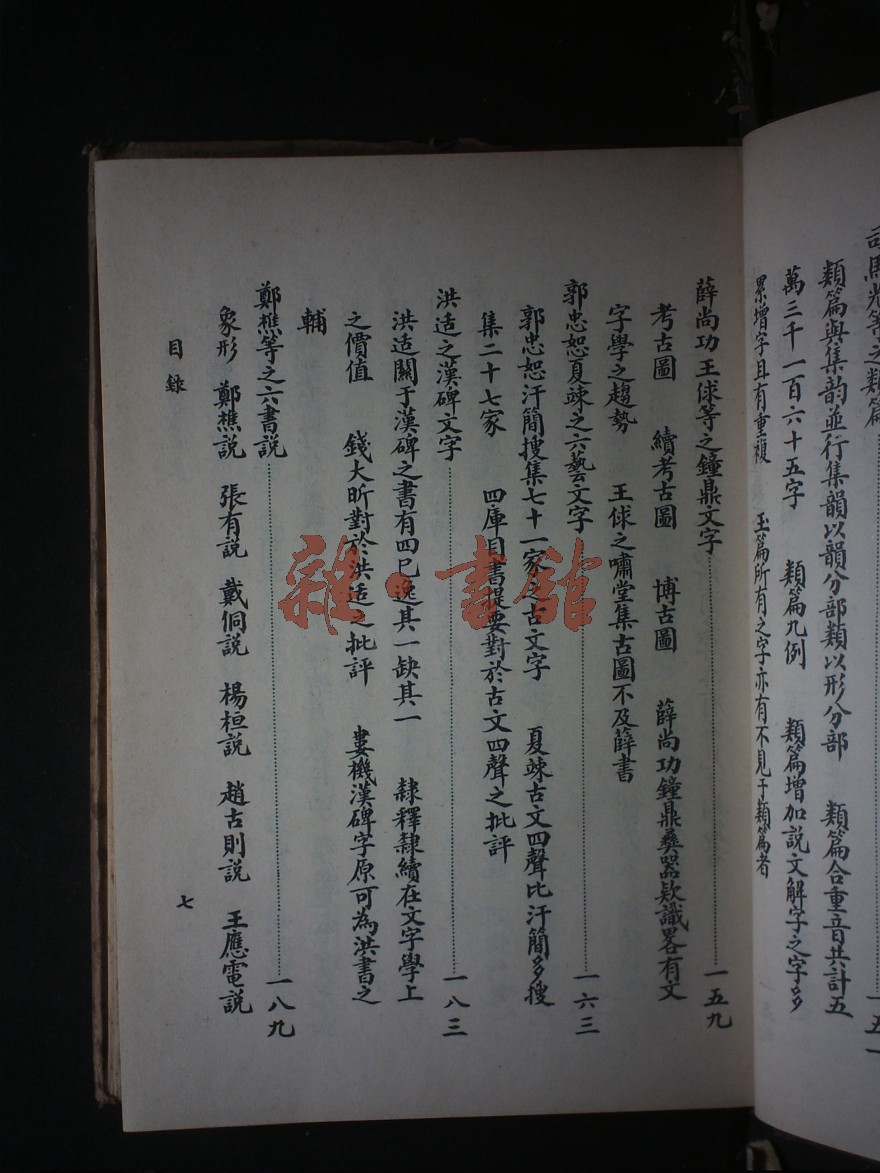 司馬光等之類篇
類篇與集韵並行集韻以韻分部類以形分部 類篇合重音共計五
萬三千一百六十五字 類篇九例 類篇增加説文解字之字多
累增字且有重複 玉篇所有之字亦有不見于類篇者
薛尚功王俅等之鐘鼎文字 一五九
考古圖 續考古圖 博古圖 薛尚功鐘鼎彝器欵識畧有文
字學之趨勢 王俅之嘯堂集古圖不及薛書
郭忠恕夏竦之六藝文字 一六三
郭忠恕汗簡搜集七十一家及之古文字 夏竦古文四聲比汗簡多搜
集二十七家 四庫目書提要對於古文四聲之批評
洪适之漢碑文字 一八三
洪适關于漢碑之書有四已逸其一缺其一 隸釋隸續在文字學上
之價值 錢大昕對於洪适之批評 婁機漢碑字原可為洪書之
輔
鄭樵等之六書説 一八九
象形 鄭樵説 張有説 戴侗説 楊桓説 趙古則説 王應電説
目錄
七
雜·書館